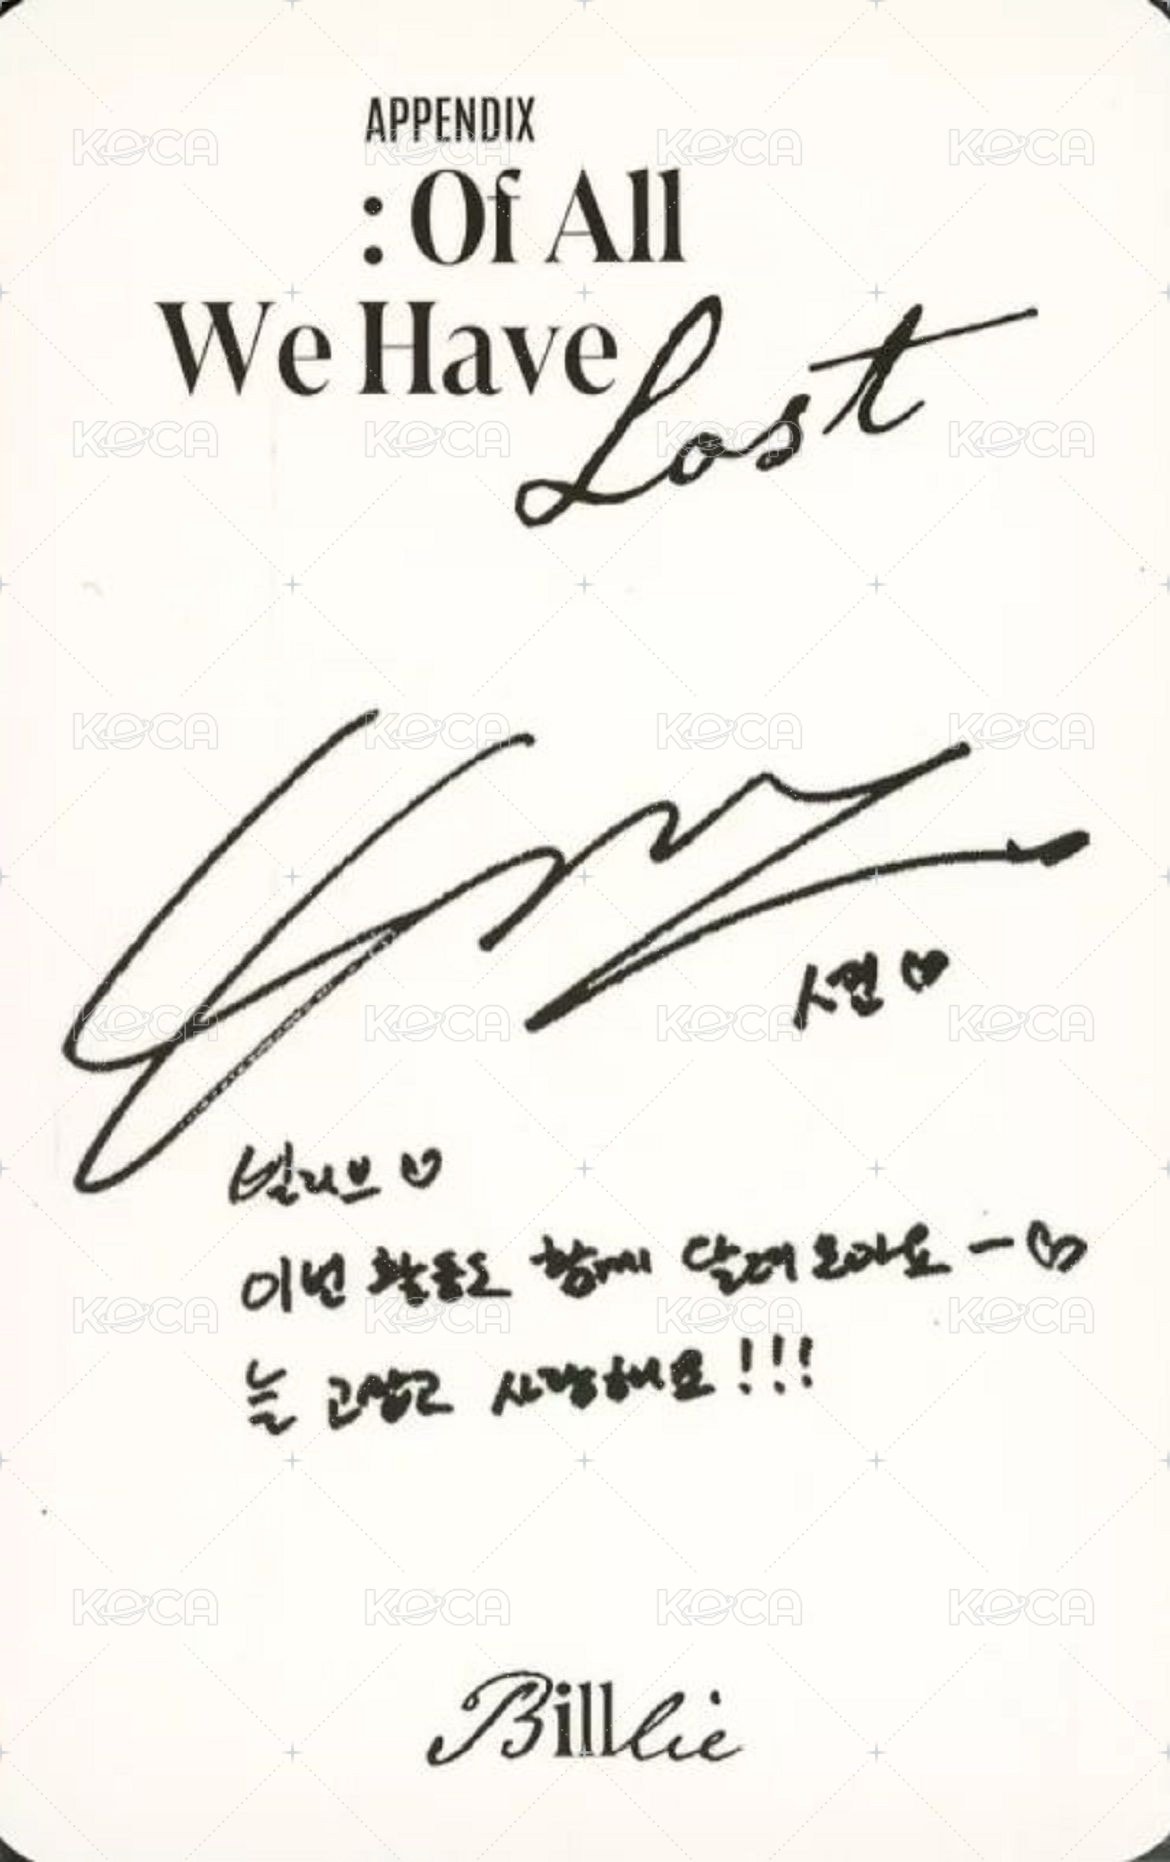 APPENDIX
: Of All
We Have Lost
시윤♡
빌리브♡
이번 활동도 함께 달려보아요ー♡
늘 고맙고 사랑해요!!!
Billlie
KOCA